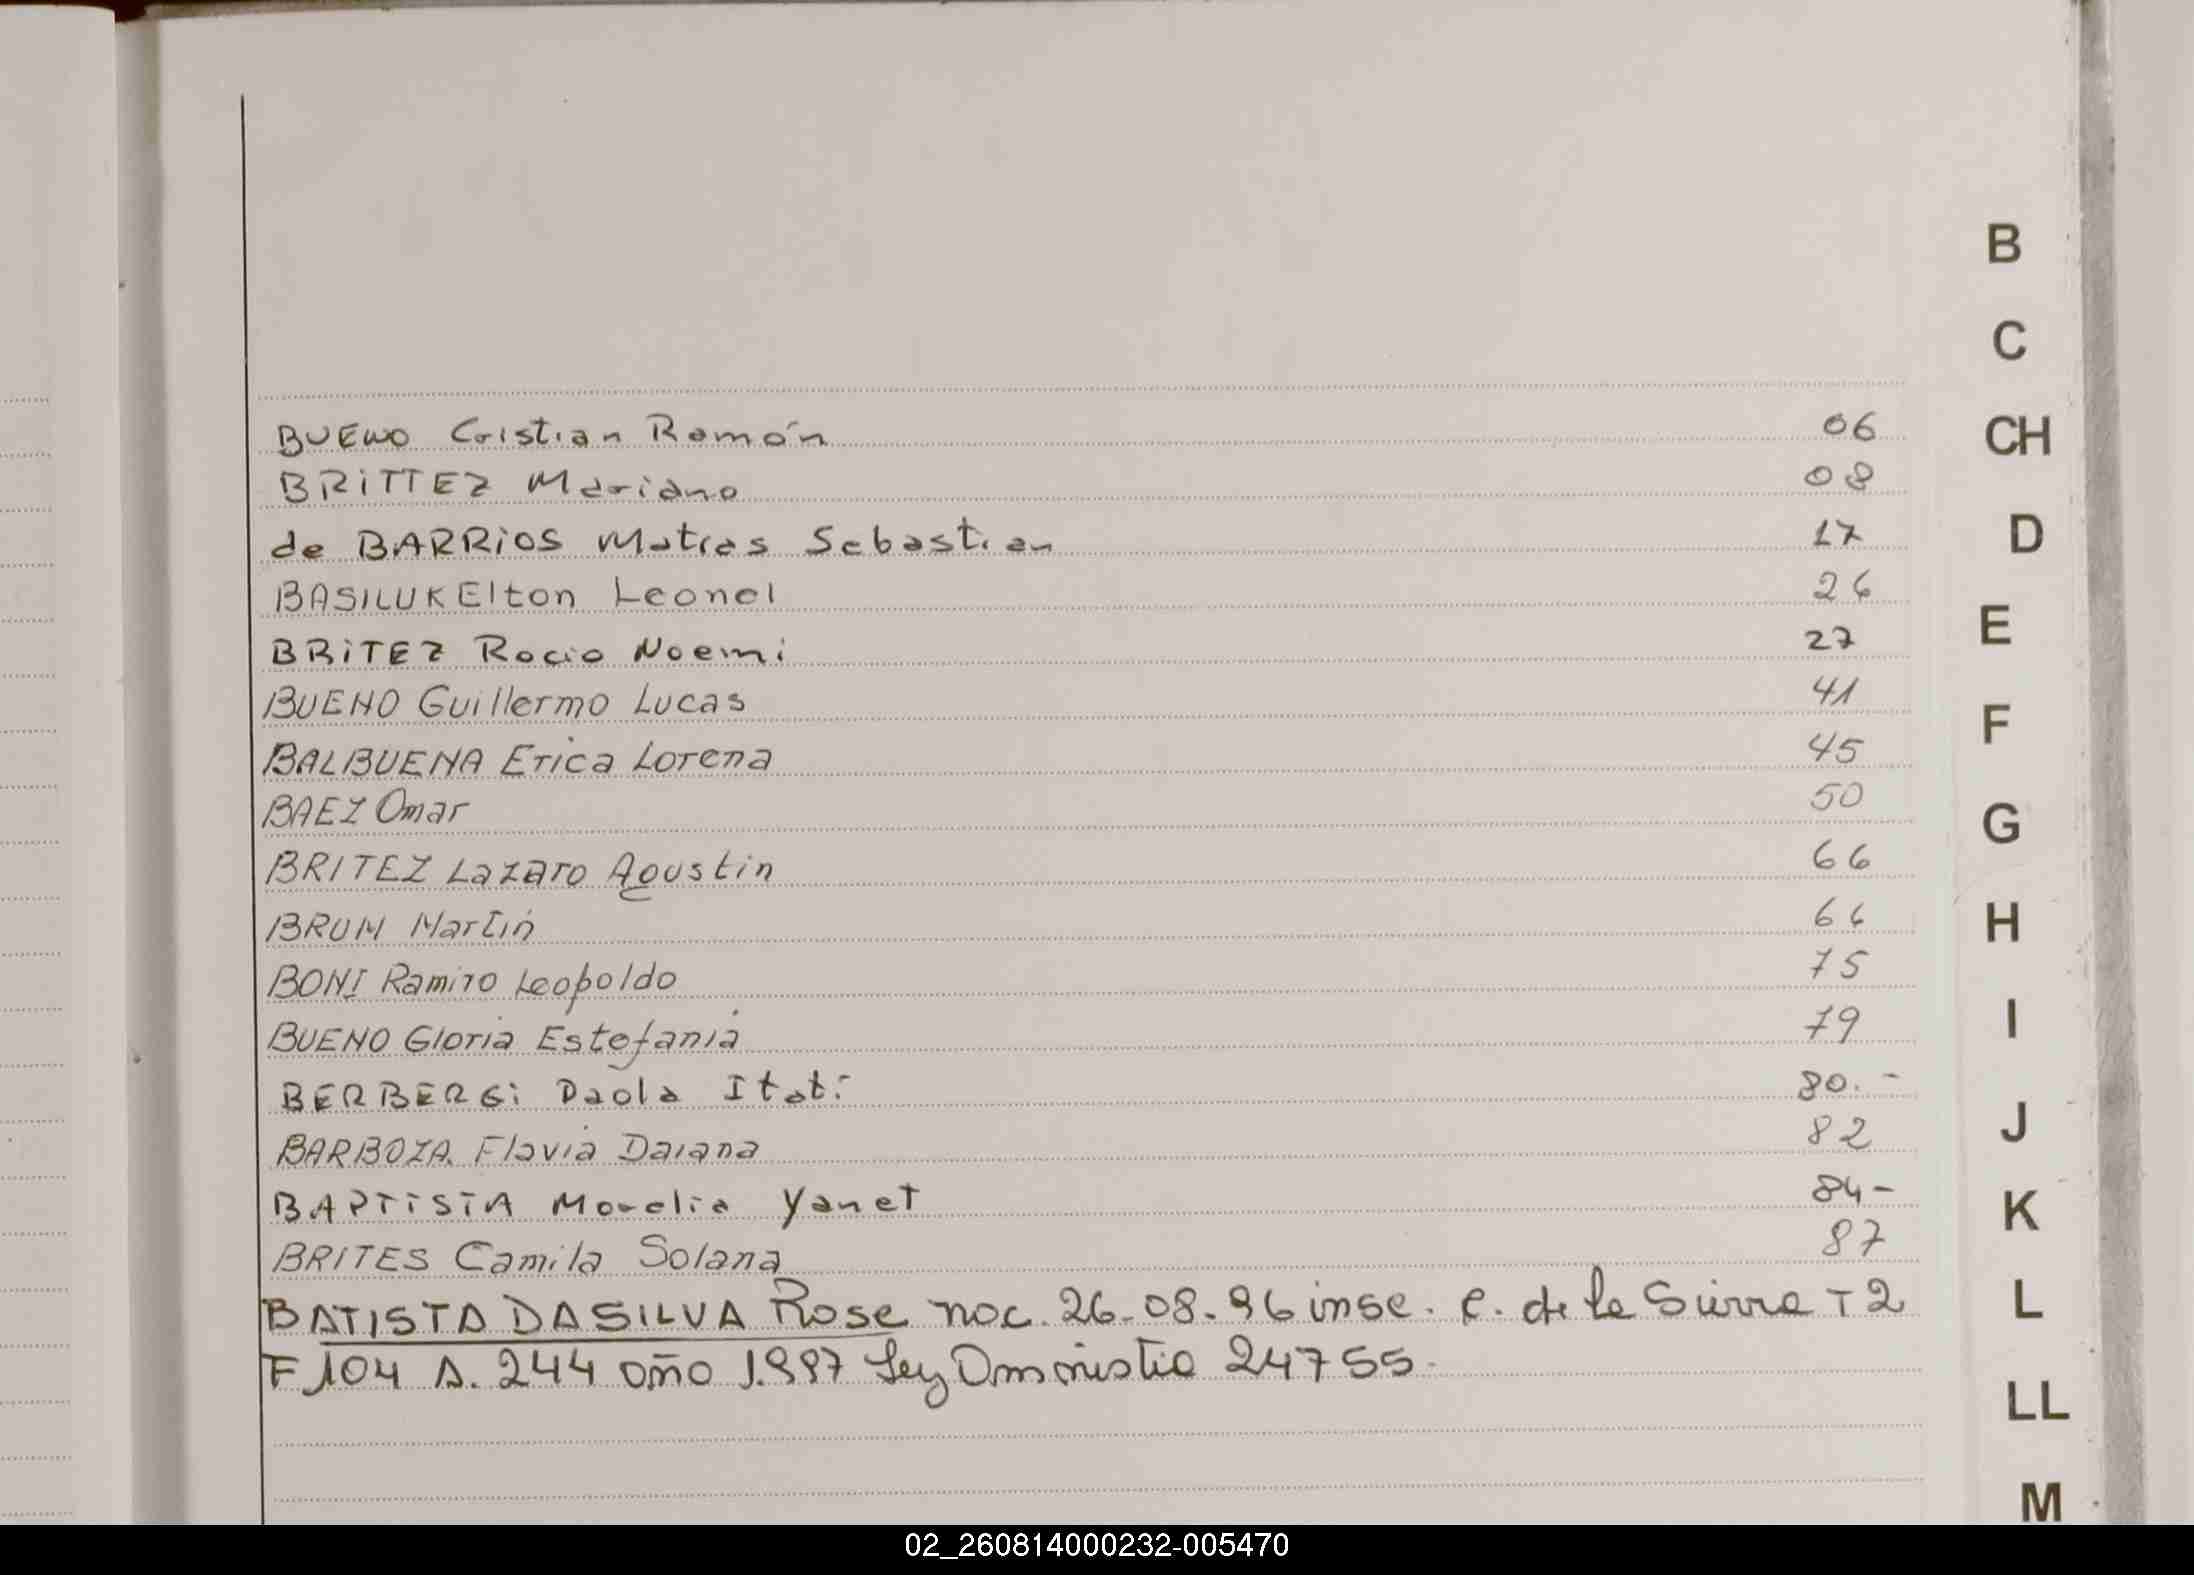 BUENO Cristian Ramón 06
BRITTEZ Mariano 08
de BARRIOS Matias Sebastian 17
BASILUK Elton Leonel 26
BRITEZ Rocio Noemi 27
BUENO Guillermo Lucas 41
BALBUENA Erica Lorena 45
BAEZ Omar 50
BRITEZ Lazaro Agustin 66
BRUM Martin 66
BONI Ramiro Leopoldo 75
BUENO Gloria Estefania 79
BERBERGi Paola Itatí 80.-
BARBOZA Flavia Daiana 82
BAPTISTA Morelia Yanet 84-
BRITES Camila Solana 87
BATISTA DA SILVA Rose nac. 26-08-96 insc. C. de la Sierra T 2
F 104 A. 244 año 1.997 Ley Amnistia 24755-
B
C
CH
D
E
F
G
H
I
J
K
L
LL
M
02_260814000232-005470